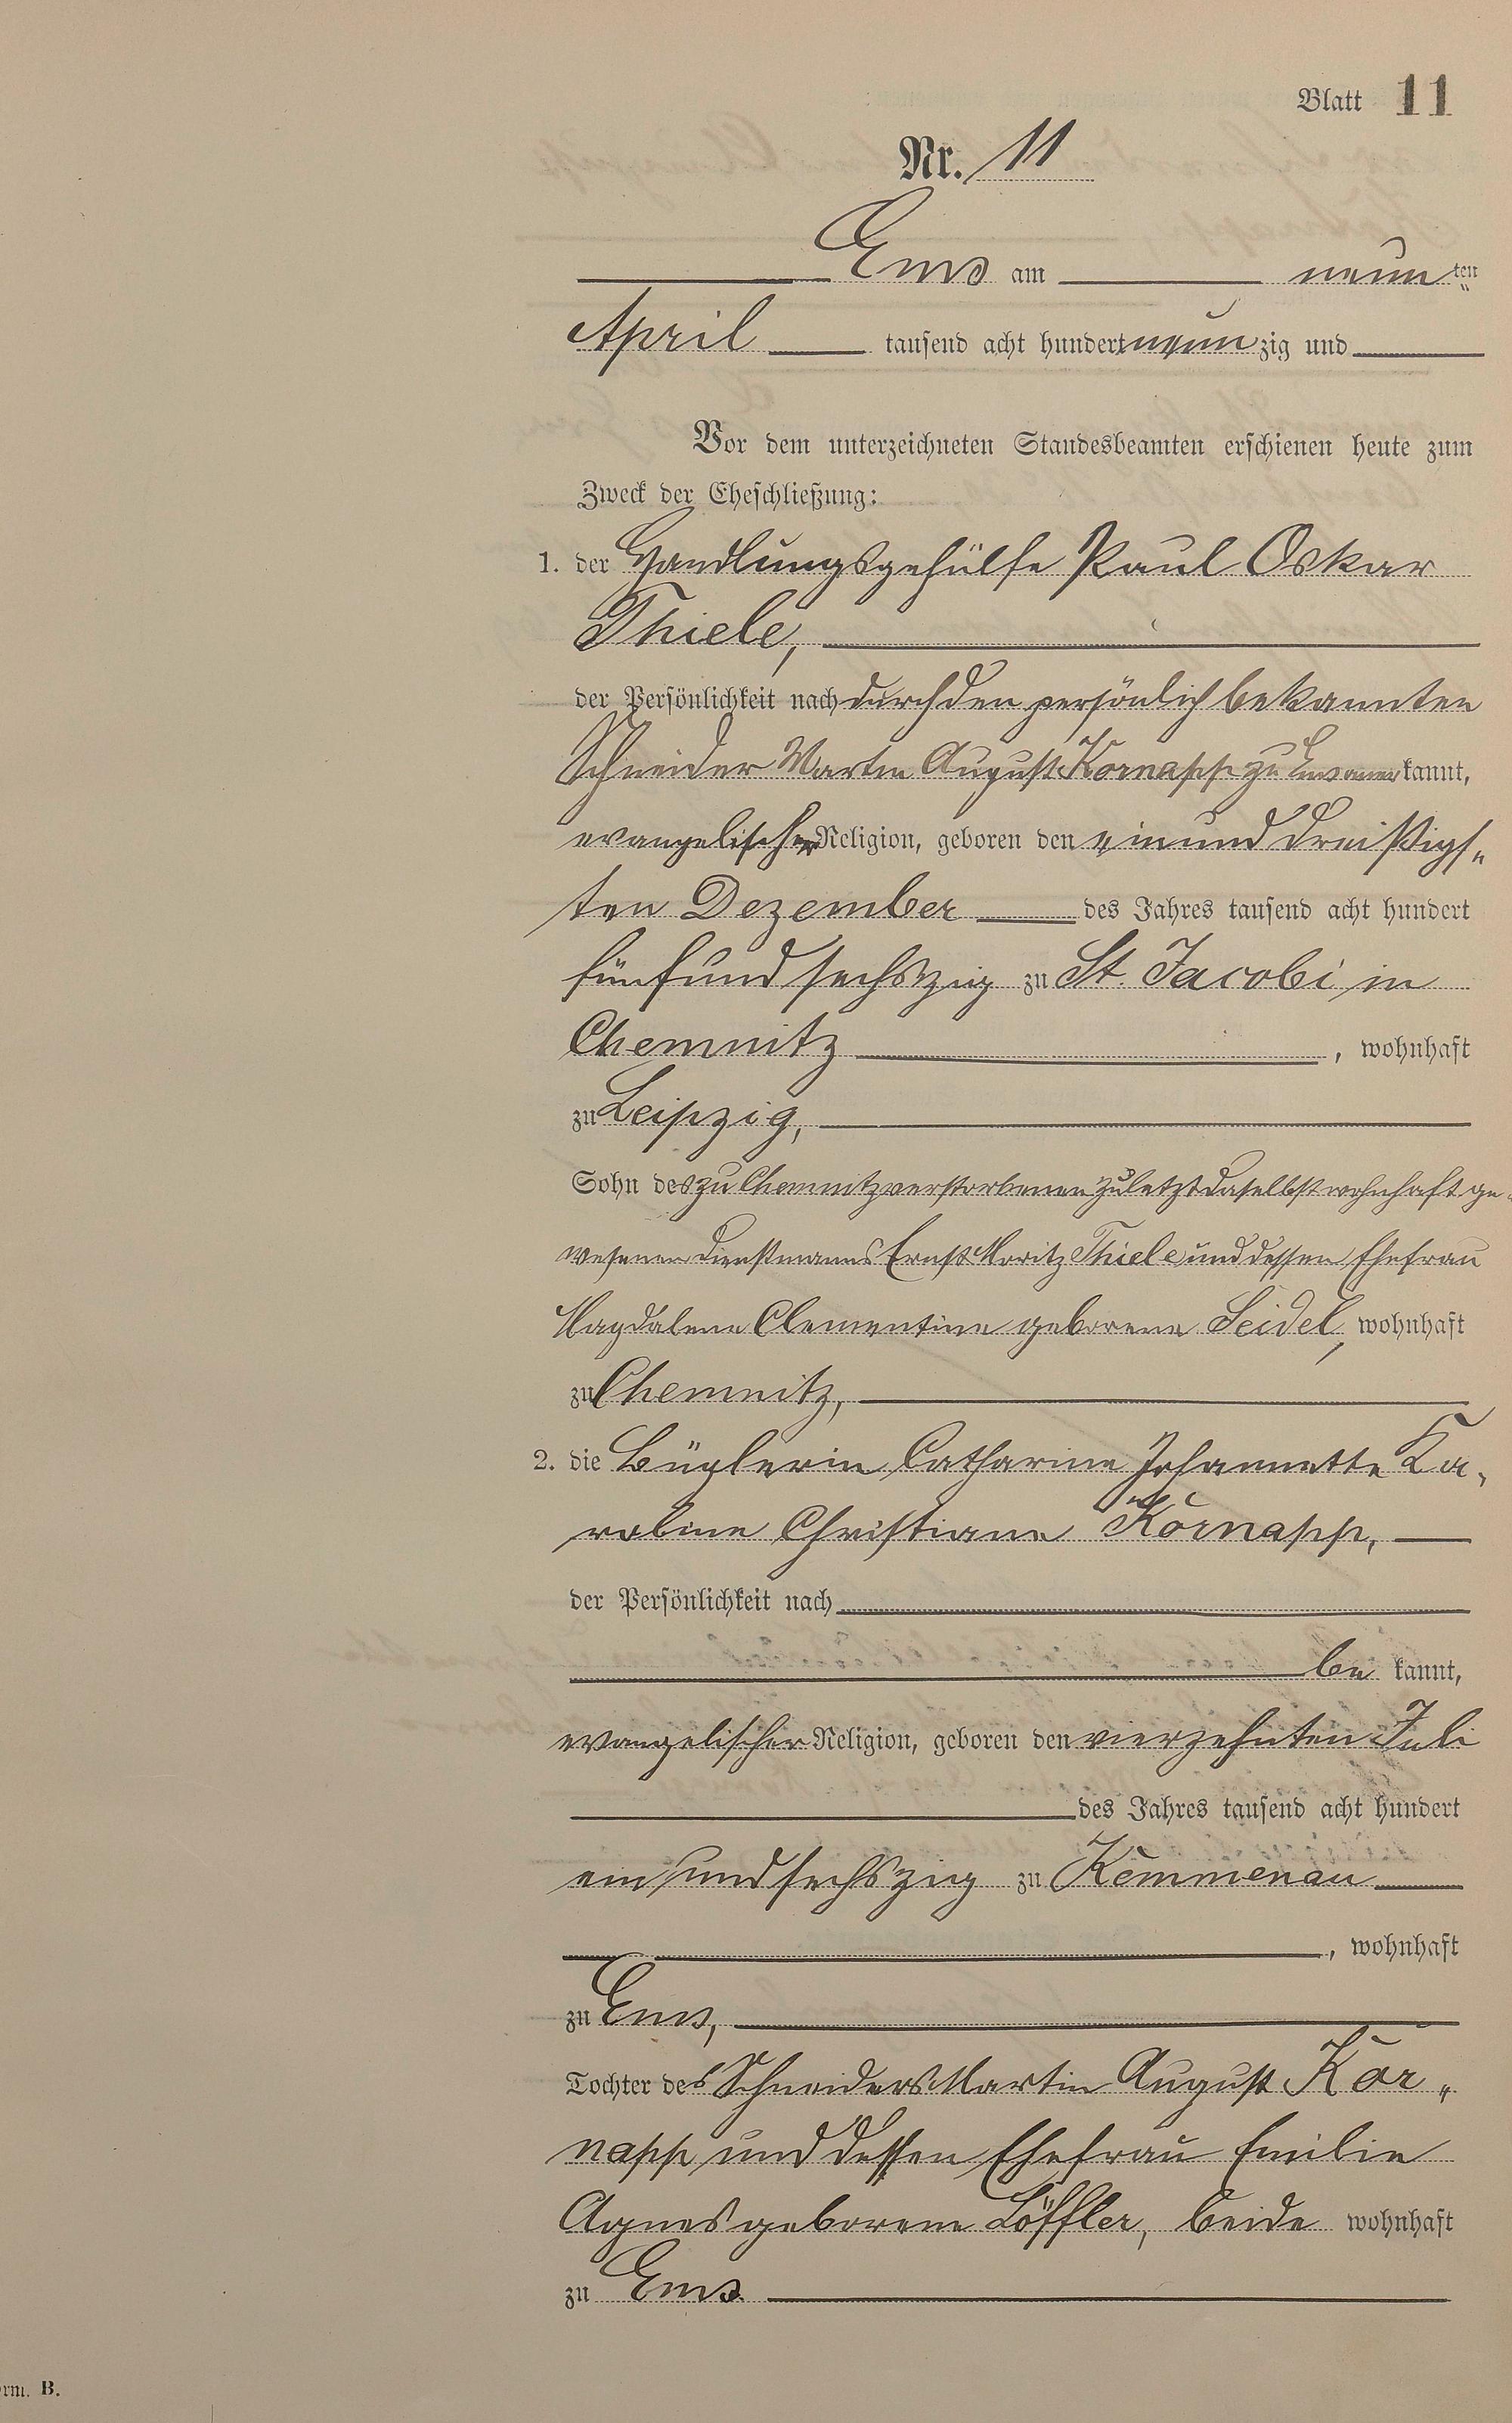 Blatt 11
Nr. 11
Ems am neunten
April tausend acht hundert neunzig und
Vor dem unterzeichneten Standesbeamten erschienen heute zum
Zweck der Eheschließung:
1. der Handlungsgehülfe Paul Oskar
Thiele,
der Persönlichkeit nach durch den persönlich bekannten
Schneider Martin August Kornapp zu Ems anerkannt,
evangelischer Religion, geboren den einund dreißigs„
ten Dezember des Jahres tausend acht hundert
fünfundsechszig zu St. Jacobi in
Chemnitz, wohnhaft
zu Leipzig,
Sohn des zu Chemnitz verstorbenen zuletzt daselbst wohnhaft ge„
wesenen Dienstmanns Ernst Moritz Thiele und dessen Ehefrau
Magdalene Clementine geborene Seidel, wohnhaft
zu Chemnitz,
2. die Büglerin Catharine Johannette Ka„
roline Christiane Kornapp,
der Persönlichkeit nach
be kannt,
evangelischer Religion, geboren den vierzehnten Juli
des Jahres tausend acht hundert
einundsechszig zu Kemmenau
, wohnhaft
zu Ems,
Tochter des Schneiders Martin August Kor„
napp und dessen Ehefrau Emilie
Agnes geborene Löffler, beide wohnhaft
zu Ems.
rm. B.